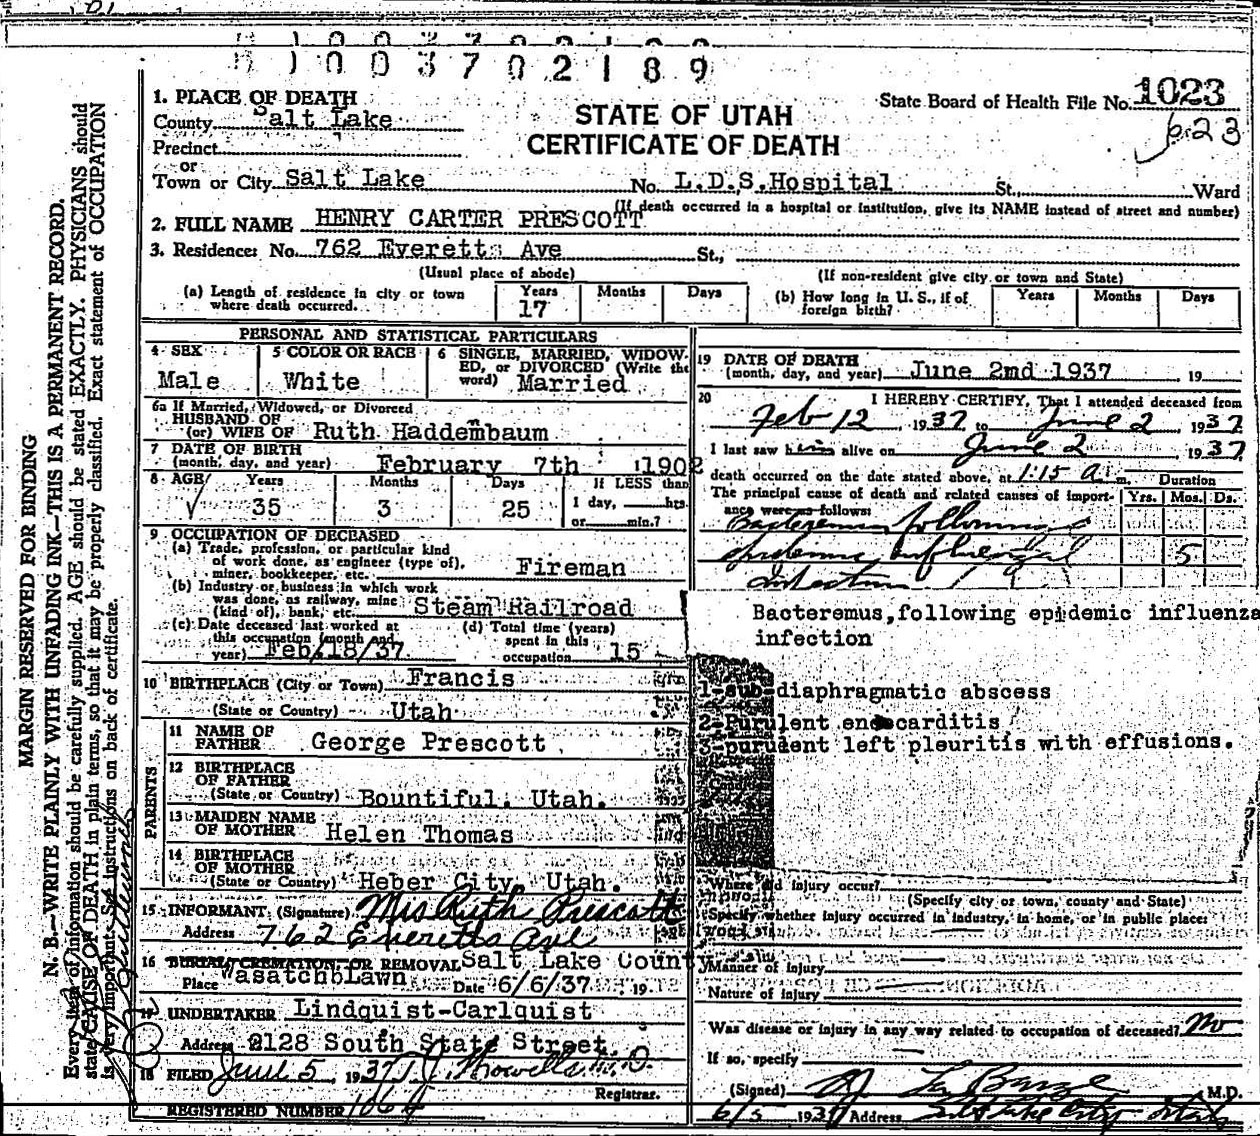 1003702189
1. PLACE OF DEATH
County Salt Lake
STATE OF UTAH
CERTIFICATE OF DEATH
State Board of Health File No. 1023
623
Precinct
or
Town or City Salt Lake No. L.D.S.Hospital St. Ward
(If death occurred in a hospital or institution, give its NAME instead of street and number)
2. FULL NAME HENRY CARTER PRESCOTT
3. Residence: No. 762 Everetts Ave St.,
(Usual place of abode) (If non-resident give city or town and State)
(a) Length of residence in city or town where death occurred. Years 17 Months Days
(b) How long in U. S., if of foreign birth? Years Months Days
PERSONAL AND STATISTICAL PARTICULARS
4 SEX Male
5 COLOR OR RACE White
6 SINGLE, MARRIED, WIDOWED, or DIVORCED (Write the word) Married
6a If Married, Widowed, or Divorced
HUSBAND OF
(or) WIFE OF Ruth Haddembaum
7 DATE OF BIRTH
(month, day, and year) February 7th 1902
8 AGE Years 35 Months 3 Days 25 If LESS than 1 day, hrs. or min.?
9 OCCUPATION OF DECEASED
(a) Trade, profession, or particular kind
of work done, as engineer (type of),
miner, bookkeeper, etc. Fireman
(b) Industry or business in which work
was done, as railway, mine
(kind of), bank, etc. Steam Railroad
(c) Date deceased last worked at
this occupation (month and
year) Feb/18/37
(d) Total time (years)
spent in this
occupation 15
10 BIRTHPLACE (City or Town) Francis
(State or Country) Utah
PARENTS
11 NAME OF
FATHER George Prescott
12 BIRTHPLACE
OF FATHER
(State or Country) Bountiful. Utah.
13 MAIDEN NAME
OF MOTHER Helen Thomas
14 BIRTHPLACE
OF MOTHER
(State or Country) Heber City Utah.
15 INFORMANT (Signature) Mrs Ruth Prescott
Address 762 Everetts Ave
16 BURIAL, CREMATION, OR REMOVAL Salt Lake County
Place WasatchbLawn Date 6/6/37 19
17 UNDERTAKER Lindquist-Carlquist
Address 2128 South State Street
18 FILED June 5, 1937 Howells M.D.
Registrar.
REGISTERED NUMBER 1064
19 DATE OF DEATH
(month, day, and year) June 2md 1937 19
20 I HEREBY CERTIFY, That I attended deceased from
Feb 12, 1937 to June 2, 1937
I last saw him alive on June 2 1937
death occurred on the date stated above, at 1:15 a. m. Duration
The principal cause of death and related causes of importance were as follows: Yrs. Mos. Ds.
Bacteremus following
epidemic influenzal 5
infection
Bacteremus,following epidemic influenza
infection
1-sub-diaphragmatic abscess
2-Purulent endocarditis
3-purulent left pleuritis with effusions.
Where did injury occur?
(Specify city or town, county and State)
Specify whether injury occurred in industry, in home, or in public place:
Manner of injury
Nature of injury
Was disease or injury in any way related to occupation of deceased? No
If so, specify
(Signed) La Barge M.D.
6/5 1937 Address Salt Lake City Utah
MARGIN RESERVED FOR BINDING
N. B.—WRITE PLAINLY WITH UNFADING INK—THIS IS A PERMANENT RECORD.
Every item of information should be carefully supplied. AGE should be stated EXACTLY. PHYSICIANS should
state CAUSE OF DEATH in plain terms, so that it may be properly classified. Exact statement of OCCUPATION
is very important. See instructions on back of certificate.